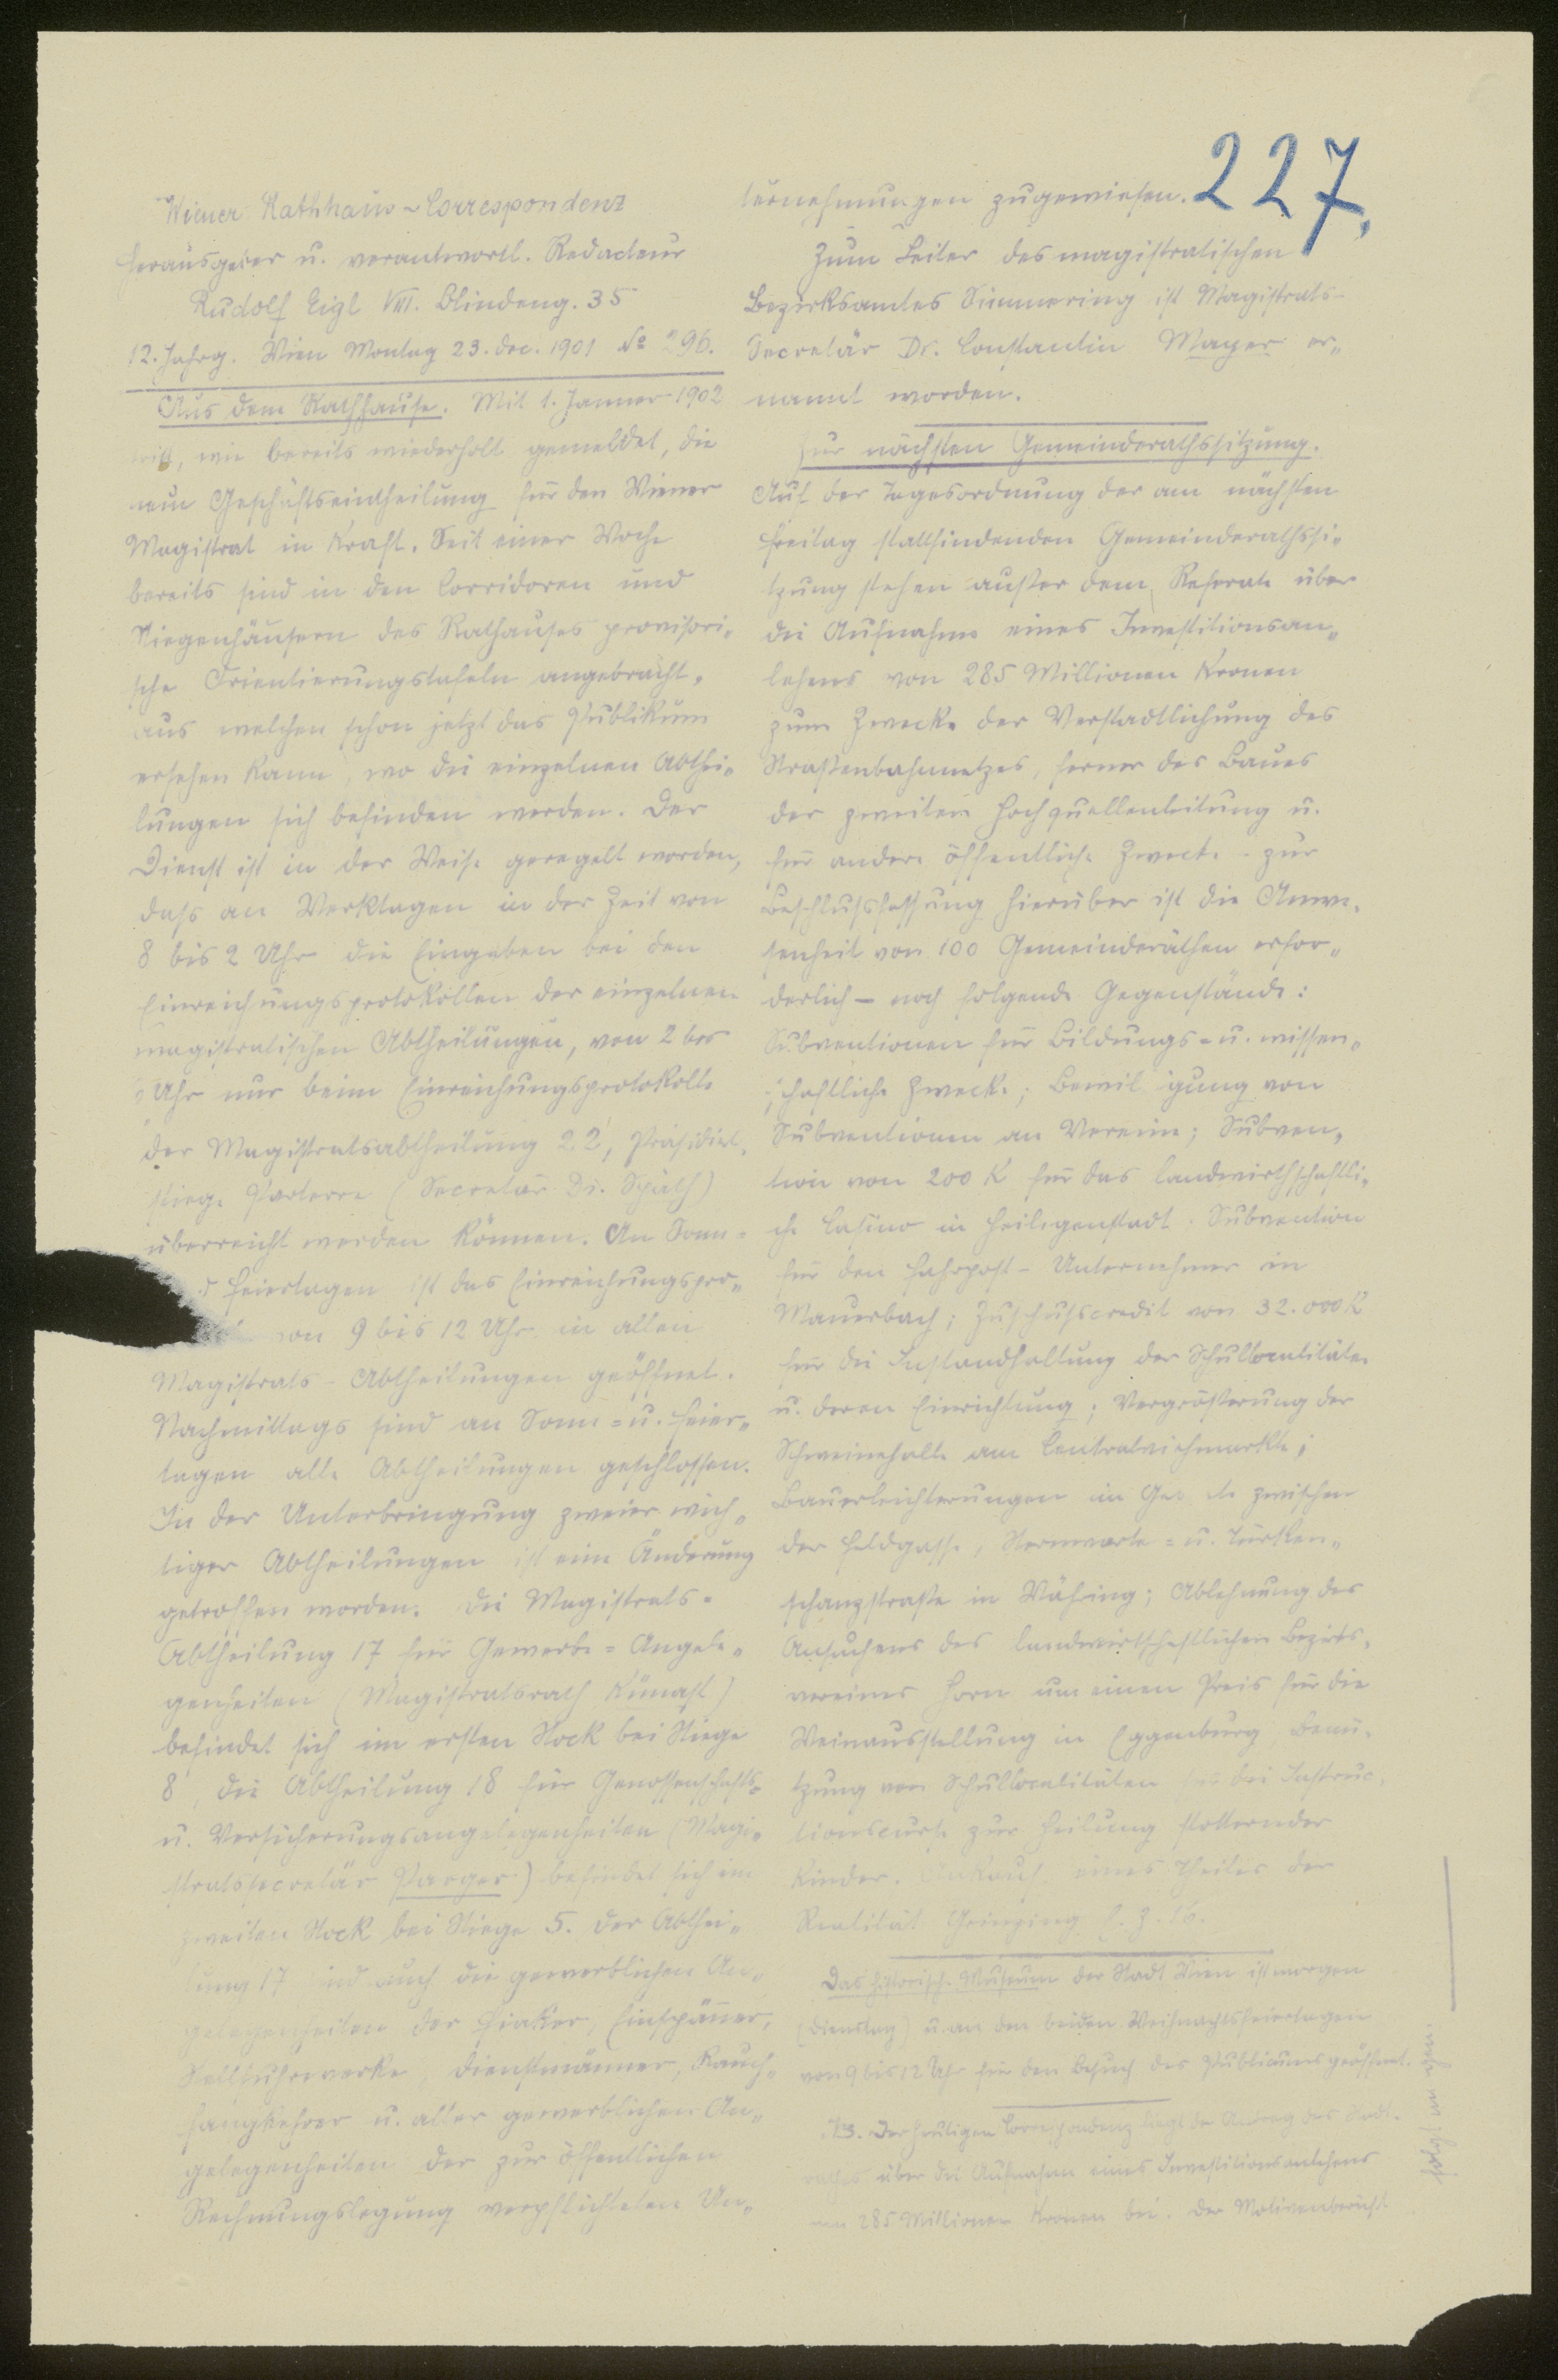 227.
Wiener Rathhaus-Correspondenz
Herausgeber u. verantwortl. Redacteur
Rudolf Eigl VIII. Blindeng. 35
12. Jahrg. Wien Montag 23. Dec. 1901 No 296.
Aus dem Rathhause. Mit 1. Jänner 1902
tritt, wie bereits wiederholt gemeldet, die
neue Geschäftseintheilung für den Wiener
Magistrat in Kraft. Seit einer Woche
bereits sind in den Corridoren und
Stiegenhäusern des Rathauses provisori„
sche Orientierungstafeln angebracht,
aus welchen schon jetzt das Publikum
ersehen kann, wo die einzelnen Abthei„
lungen sich befinden werden. Der
Dienst ist in der Weise geregelt worden,
dass an Werktagen in der Zeit von
8 bis 2 Uhr die Eingaben bei den
Einreichungsprotokollen der einzelnen
magistratischen Abtheilungen, von 2 bis
Uhr nur beim Einreichungsprotokolle
der Magistratsabtheilung 22, Präsidial„
stiege Parterre (Secretär Dr. Späth)
überreicht werden können. An Sonn=
Feiertagen ist das Einreichungspro„
von 9 bis 12 Uhr in allen
Magistrats-Abtheilungen geöffnet.
Nachmittags sind an Sonn= u. Feier„
tagen alle Abtheilungen geschlossen.
In der Unterbringung zweier wich„
tiger Abtheilungen ist eine Änderung
getroffen worden. Die Magistrats=
Abtheilung 17 für Gewerbe=Angele„
genheiten (Magistratsrath Künast)
befindet sich im ersten Stock bei Stiege
8, die Abtheilung 18 für Genossenschafts=
u. Versicherungsangelegenheiten (Magi„
stratssecretär Parger) befindet sich im
zweiten Stock bei Stiege 5. Der Abthei„
lung 17 sind auch die gewerblichen An„
gelegenheiten der Fiaker, Einspänner,
Stellfuhrwerke, Dienstmänner, Rauch„
fangkehrer u. aller gewerblichen An„
gelegenheiten der zur öffentlichen
Rechnungslegung verpflichteten Un„
ternehmungen zugewiesen.
Zum Leiter des magistratischen
Bezirksamtes Simmering ist Magistrats-
Secretär Dr. Constantin Mayer er„
nannt worden.
Zur nächsten Gemeinderathssitzung.
Auf der Tagesordnung der am nächsten
Freitag stattfindenden Gemeinderathssi„
tzung stehen außer dem Referate über
die Aufnahme eines Investitionsan„
lehens von 285 Millionen Kronen
zum Zwecke der Verstadtlichung des
Straßenbahnnetzes, ferner des Baues
der zweiten Hochquellenleitung u.
für andere öffentliche Zwecke - zur
Beschlussfassung hierüber ist die Anwe„
senheit von 100 Gemeinderäthen erfor„
derlich - noch folgende Gegenstände:
Subventionen für Bildungs= u. wissen„
schaftliche Zwecke; Bewilligung von
Subventionen an Vereine; Subven„
tion von 200 K für das landwirthschaftli„
che Casino in Heiligenstadt; Subvention
für den Fahrpost-Unternehmer in
Mauerbach; Zuschusscredit von 32.000 K
für die Instandhaltung der Schullocalitäten
u. deren Einrichtung; Vergrößerung der
Schweinehalle am Centralviehmarkte;
Bauerleichterungen im Gebiete zwischen
der Feldgasse, Sternwarte= u. Türken„
schanzstraße in Währing; Ablehnung des
Ansuchens des landwirtschaftlichen Bezirks„
vereines Horn um einen Preis für die
Weinausstellung in Eggenburg; Benü„
tzung von Schullocalitäten bei Instruc„
tionscurse zur Heilung stotternder
Kinder. Ankauf eines Theiles der
Realität Grinzing C. Z. 16.
Das historische Museum der Stadt Wien ist morgen
(Dienstag) u. an den beiden Weihnachtsfeiertagen
von 9 bis 12 Uhr für den Besuch des Publicums geöffnet.
NB. Der heutigen Correspondenz liegt der Antrag des Stadt„
rathes über die Aufnahme eines Investitionsanlehens
von 285 Millionen Kronen bei. Der Motivenbericht